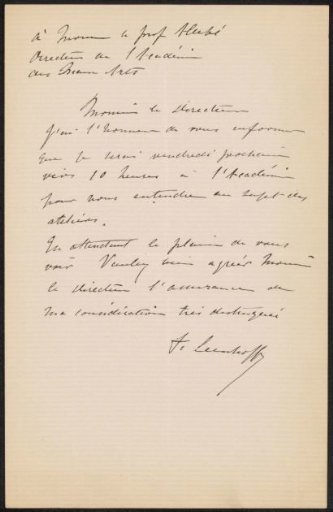 à Monsieur le prof Allebé
Directeur de l'Académie
des Beaux Arts
Monsieur le Directeur
J'ai l'honneur de vous informer
que je serai vendredi prochain
vers 10 heures à l'Académie
pour nous entendre au sujet des
ateliers.
En attendant le plaisir de vous
voir Veuillez bien agréer Monsieur
le directeur l'assurance de
ma considération très distinguée
F. Leenhoff